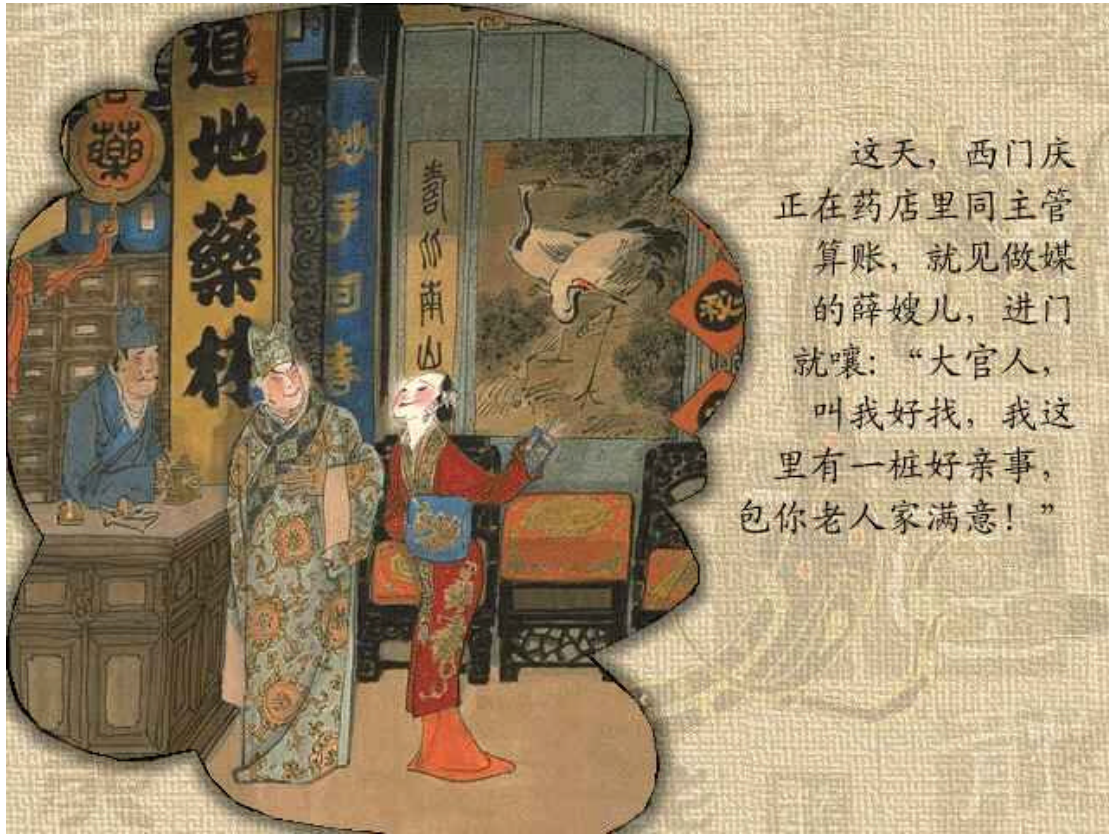 藥
道地藥材
妙手回春
壽比南山
这天，西门庆
正在药店里同主管
算账，就见做媒
的薛嫂儿，进门
就嚷：“大官人，
叫我好找，我这
里有一桩好亲事，
包你老人家满意！”